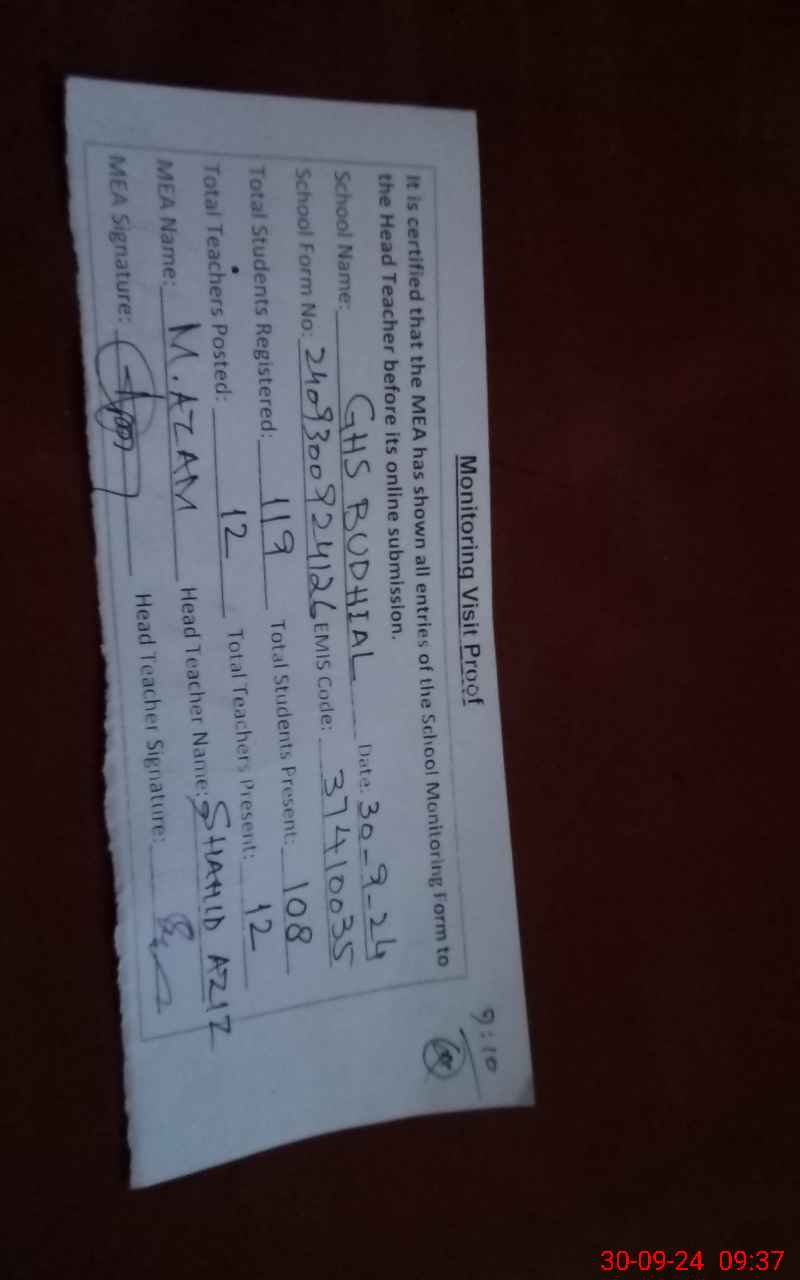 9:10
Monitoring Visit Proof
It is certified that the MEA has shown all entries of the School Monitoring Form to
the Head Teacher before its online submission.
School Name: GHS BUDHIAL Date: 30-9-24
School Form No: 2409300924126 EMIS Code: 37410035
Total Students Registered: 119 Total Students Present: 108
Total Teachers Posted: 12 Total Teachers Present: 12
MEA Name: M. AZAM Head Teacher Name: SHAHID AZIZ
MEA Signature: Head Teacher Signature:
30-09-24 09:37